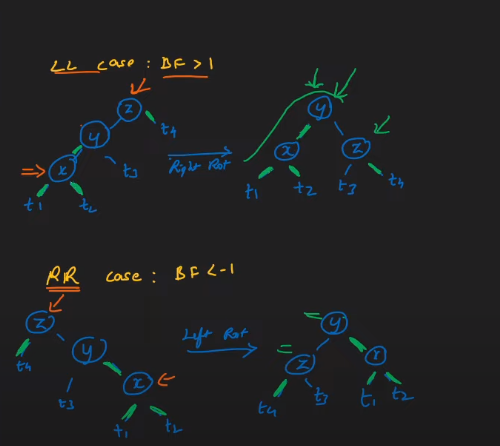 LL case : BF > 1
z
y
t4
x
t3
t1
t2
Right Rot
y
x
z
t1
t2
t3
t4
RR case : BF < -1
z
y
t4
x
t3
t1
t2
Left Rot
y
z
x
t4
t3
t1
t2